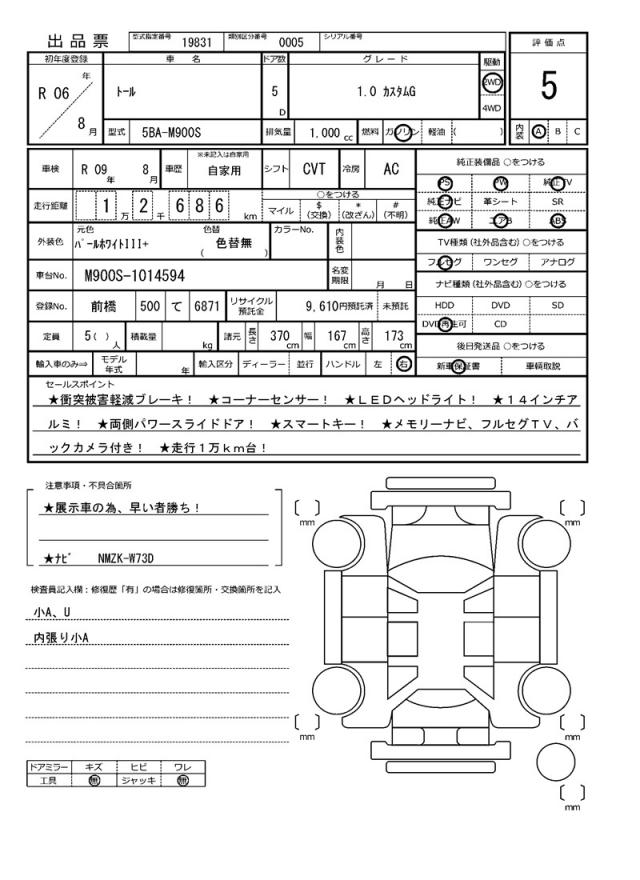 出品票 型式指定番号 19831 類別区分番号 0005 シリアル番号
評価点
5
内装 A B C
初年度登録 車名 ドア数 グレード 駆動
R 06 年 8 月 トール 5 D 1.0 カスタムG 2WD 4WD
型式 5BA-M900S 排気量 1.000 cc 燃料 ガソリン 軽油 ( )
車検 R 09 年 8 月 車歴 ※未記入は自家用 自家用 シフト CVT 冷房 AC
走行距離 1 万 2 千 6 8 6 km ○をつける
マイル $ (交換) * (改ざん) # (不明)
外装色 元色 パールホワイトIII+ 色替 色替無 ( ) カラーNo. 内装色
車台No. M900S-1014594 名変期限 月 日
登録No. 前橋 500 て 6871 リサイクル預託金 9,610円預託済 未預託
定員 5( )人 積載量 kg 諸元 長さ 370 cm 幅 167 cm 高さ 173 cm
輸入車のみ⇒ モデル年式 年 輸入区分 ディーラー 並行 ハンドル 左 右
純正装備品 ○をつける
PS PW 純正TV
純正ナビ 革シート SR
純正AW エアB ABS
TV種類(社外品含む)○をつける
フルセグ ワンセグ アナログ
ナビ種類(社外品含む)○をつける
HDD DVD SD
DVD再生可 CD
後日発送品 ○をつける
新車保証書 車輌取説
セールスポイント
★衝突被害軽減ブレーキ! ★コーナーセンサー! ★LEDヘッドライト! ★14インチア
ルミ! ★両側パワースライドドア! ★スマートキー! ★メモリーナビ、フルセグTV、バ
ックカメラ付き! ★走行1万km台!
注意事項・不具合箇所
★展示車の為、早い者勝ち!
★ナビ NMZK-W73D
検査員記入欄:修復歴「有」の場合は修復箇所・交換箇所を記入
小A、U
内張り小A
ドアミラー キズ ヒビ ワレ
工具 無 ジャッキ 無
〔 〕 mm
〔 〕 mm
〔 〕 mm
〔 〕 mm
〔 〕 mm